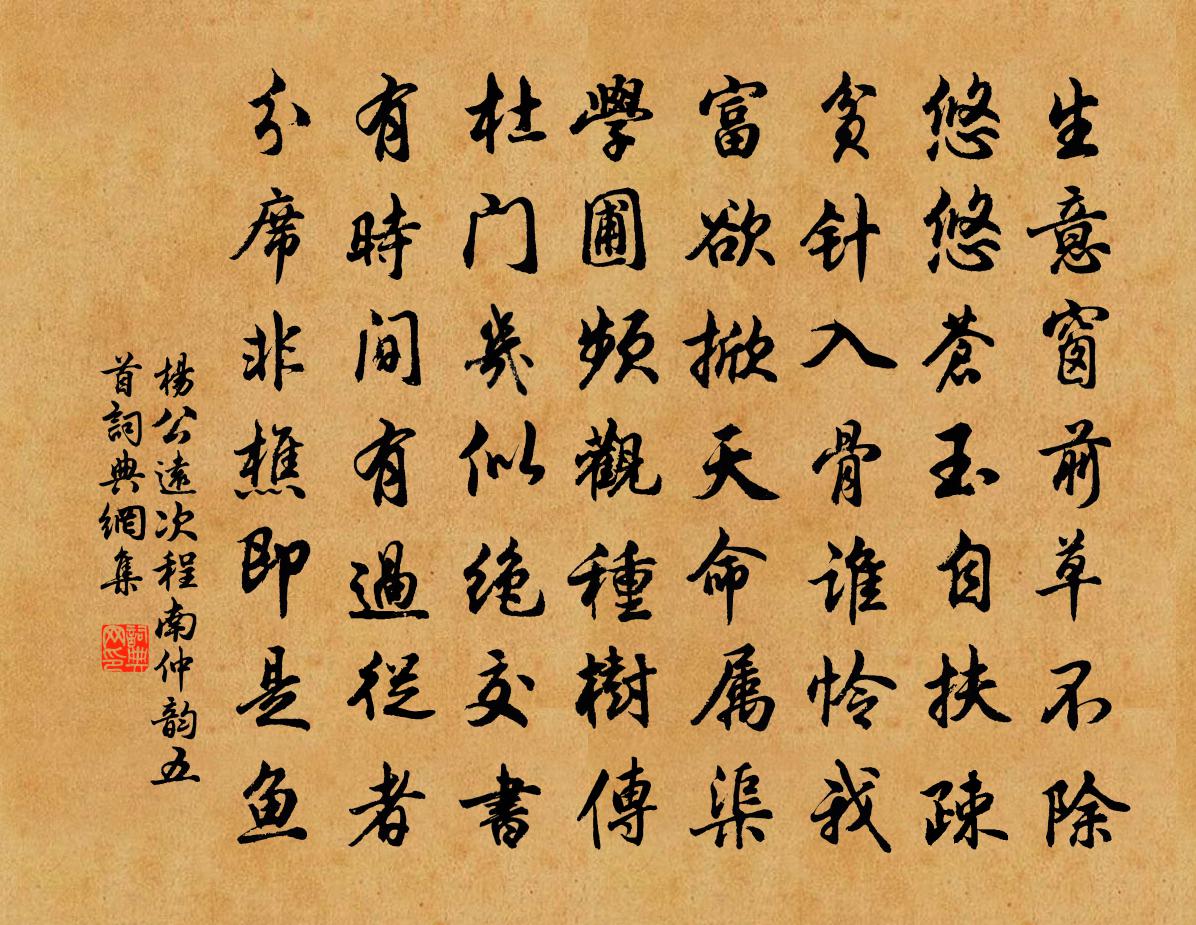 生意窗前草不除
悠悠蒼玉自扶疎
貧针入骨谁怜我
富欲掀天命属渠
學圃频觀種樹傳
杜门幾似绝交書
有時间有過從者
分席非樵即是鱼
楊公遠次程南仲韵五
首詞典網集
詞典网印